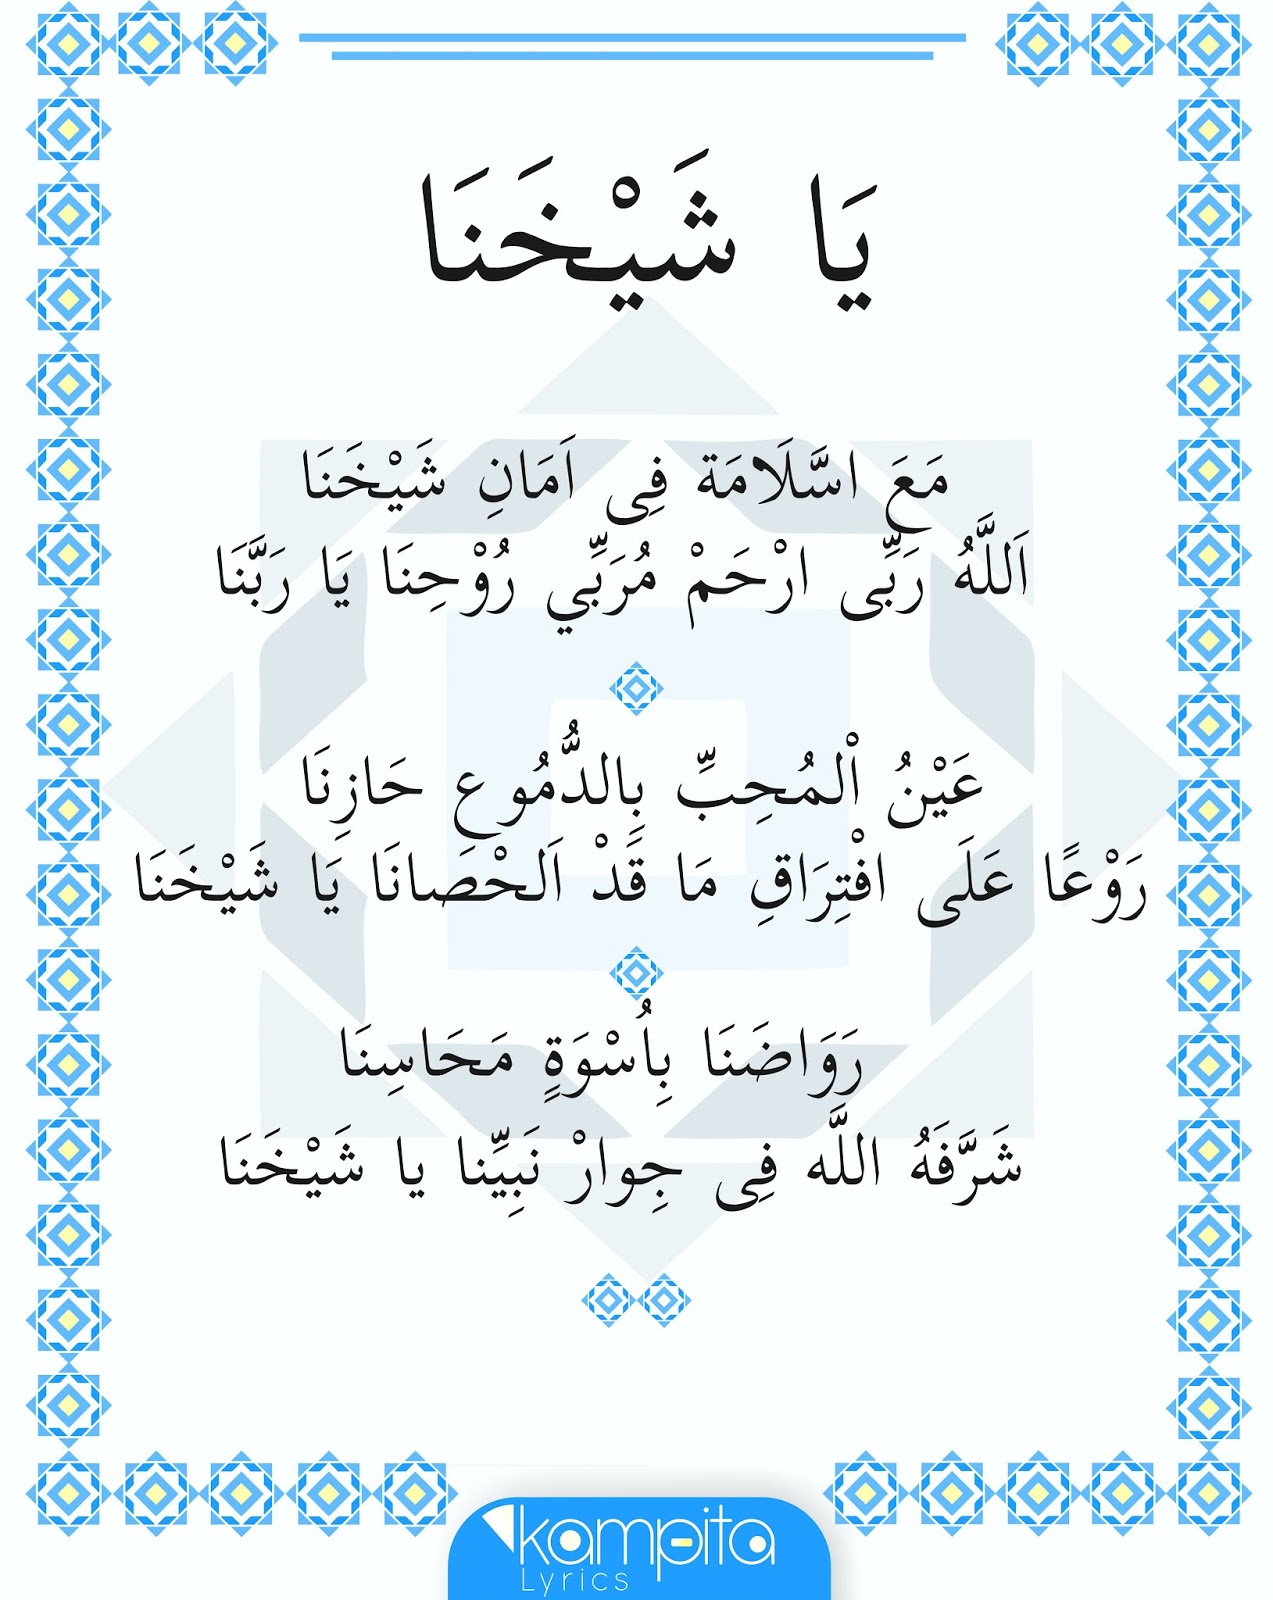 يَا شَيْخَنَا
مَعَ اسَّلَامَة فِى اَمَانِ شَيْخَنَا
اَللَّهُ رَبِّى ارْحَمْ مُرَبِّي رُوْحِنَا يَا رَبَّنَا
عَيْنُ اْلمُحِبِّ بِالدُّمُوعِ حَازِنَا
رَوْعًا عَلَى افْتِرَاقِ مَا قَدْ اَلحْصَانَا يَا شَيْخَنَا
رَوَاضَنَا بِاُسْوَةٍ مَحَاسِنَا
شَرَّفَهُ اللَّه فِى جِوارْ نَبِيِّنا يا شَيْخَنَا
kampita
Lyrics